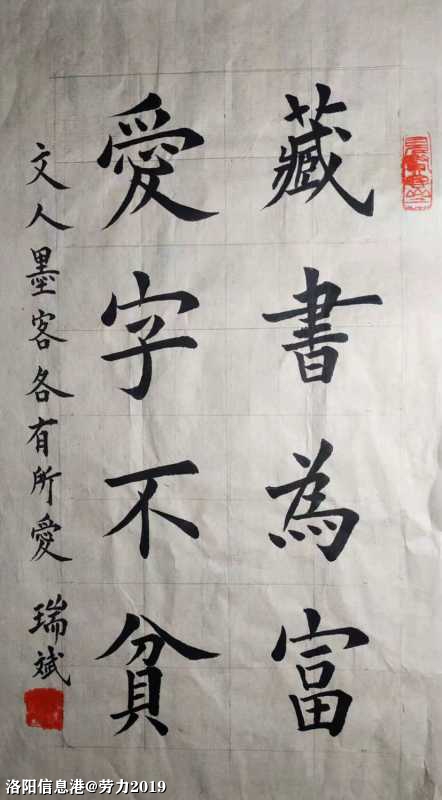 藏書為富
愛字不貧
文人墨客各有所愛 瑞斌
洛阳信息港@劳力2019